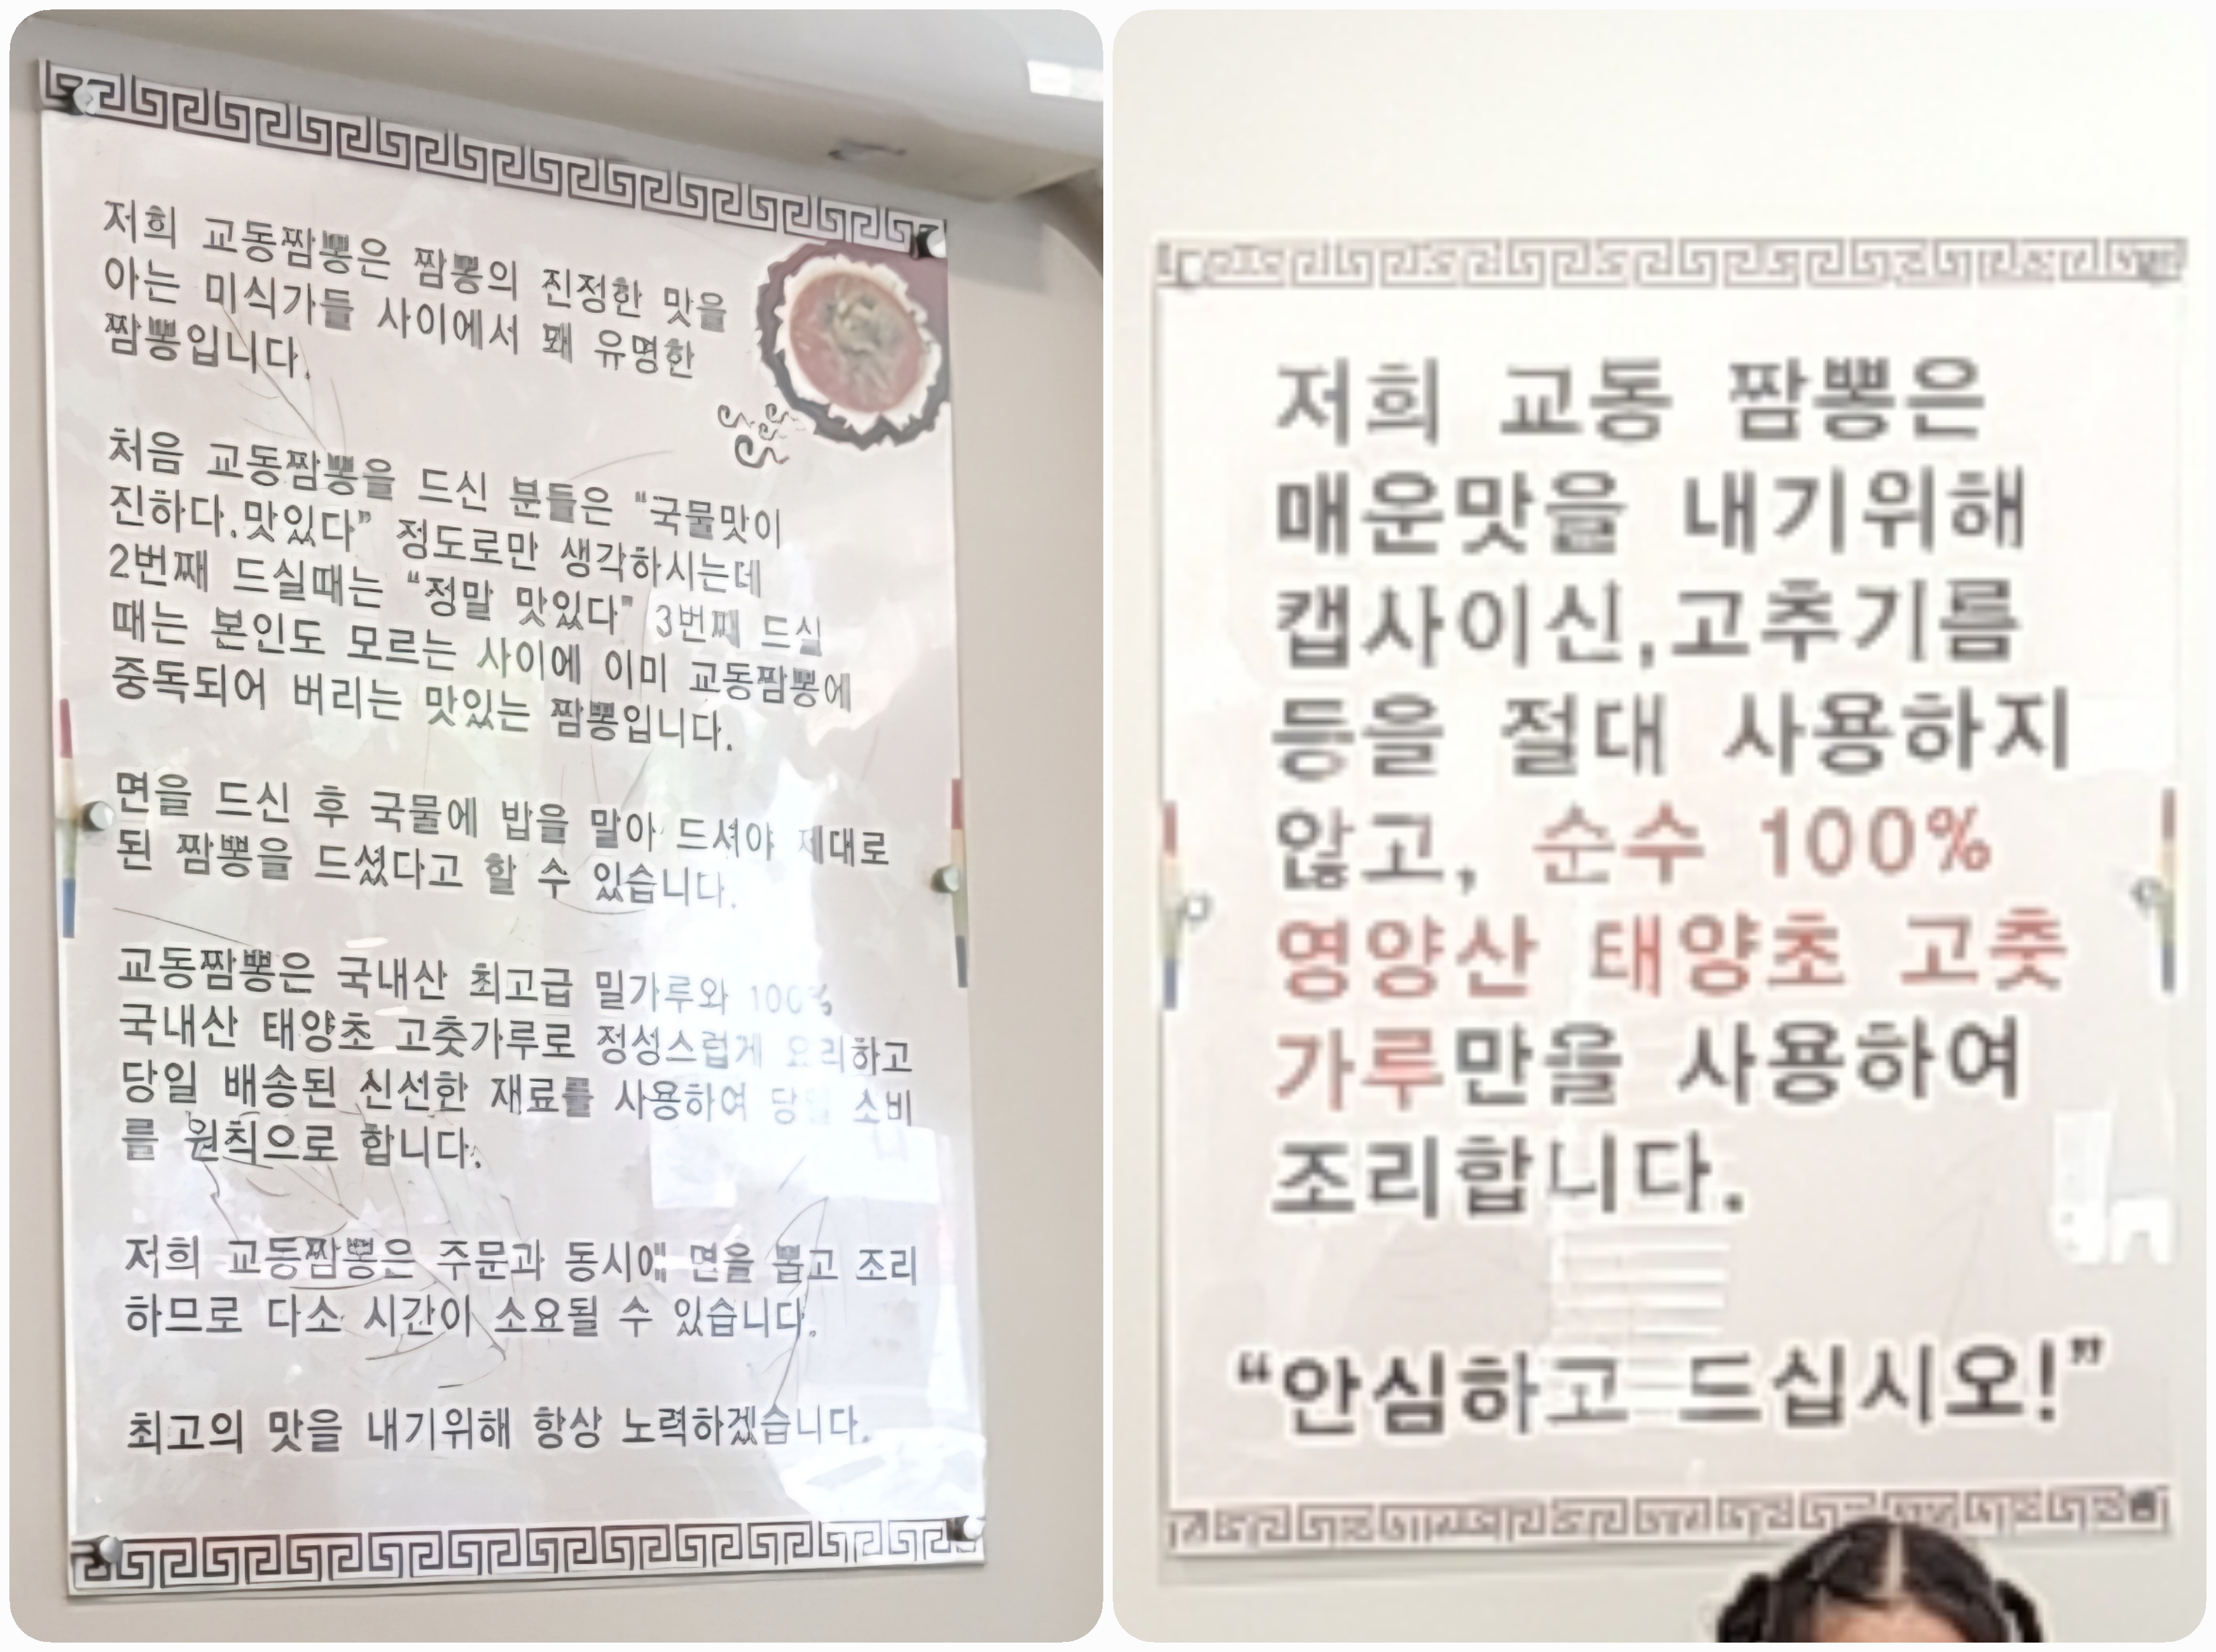 저희 교동짬뽕은 짬뽕의 진정한 맛을
아는 미식가들 사이에서 꽤 유명한
짬뽕입니다.
처음 교동짬뽕을 드신 분들은 “국물맛이
진하다.맛있다” 정도로만 생각하시는데
2번째 드실때는 “정말 맛있다” 3번째 드실
때는 본인도 모르는 사이에 이미 교동짬뽕에
중독되어 버리는 맛있는 짬뽕입니다.
면을 드신 후 국물에 밥을 말아 드셔야 제대로
된 짬뽕을 드셨다고 할 수 있습니다.
교동짬뽕은 국내산 최고급 밀가루와 100%
국내산 태양초 고춧가루로 정성스럽게 요리하고
당일 배송된 신선한 재료를 사용하여 당일 소비
를 원칙으로 합니다.
저희 교동짬뽕은 주문과 동시에 면을 뽑고 조리
하므로 다소 시간이 소요될 수 있습니다.
최고의 맛을 내기위해 항상 노력하겠습니다.
저희 교동 짬뽕은
매운맛을 내기위해
캡사이신,고추기름
등을 절대 사용하지
않고, 순수 100%
영양산 태양초 고춧
가루만을 사용하여
조리합니다.
“안심하고 드십시오!”